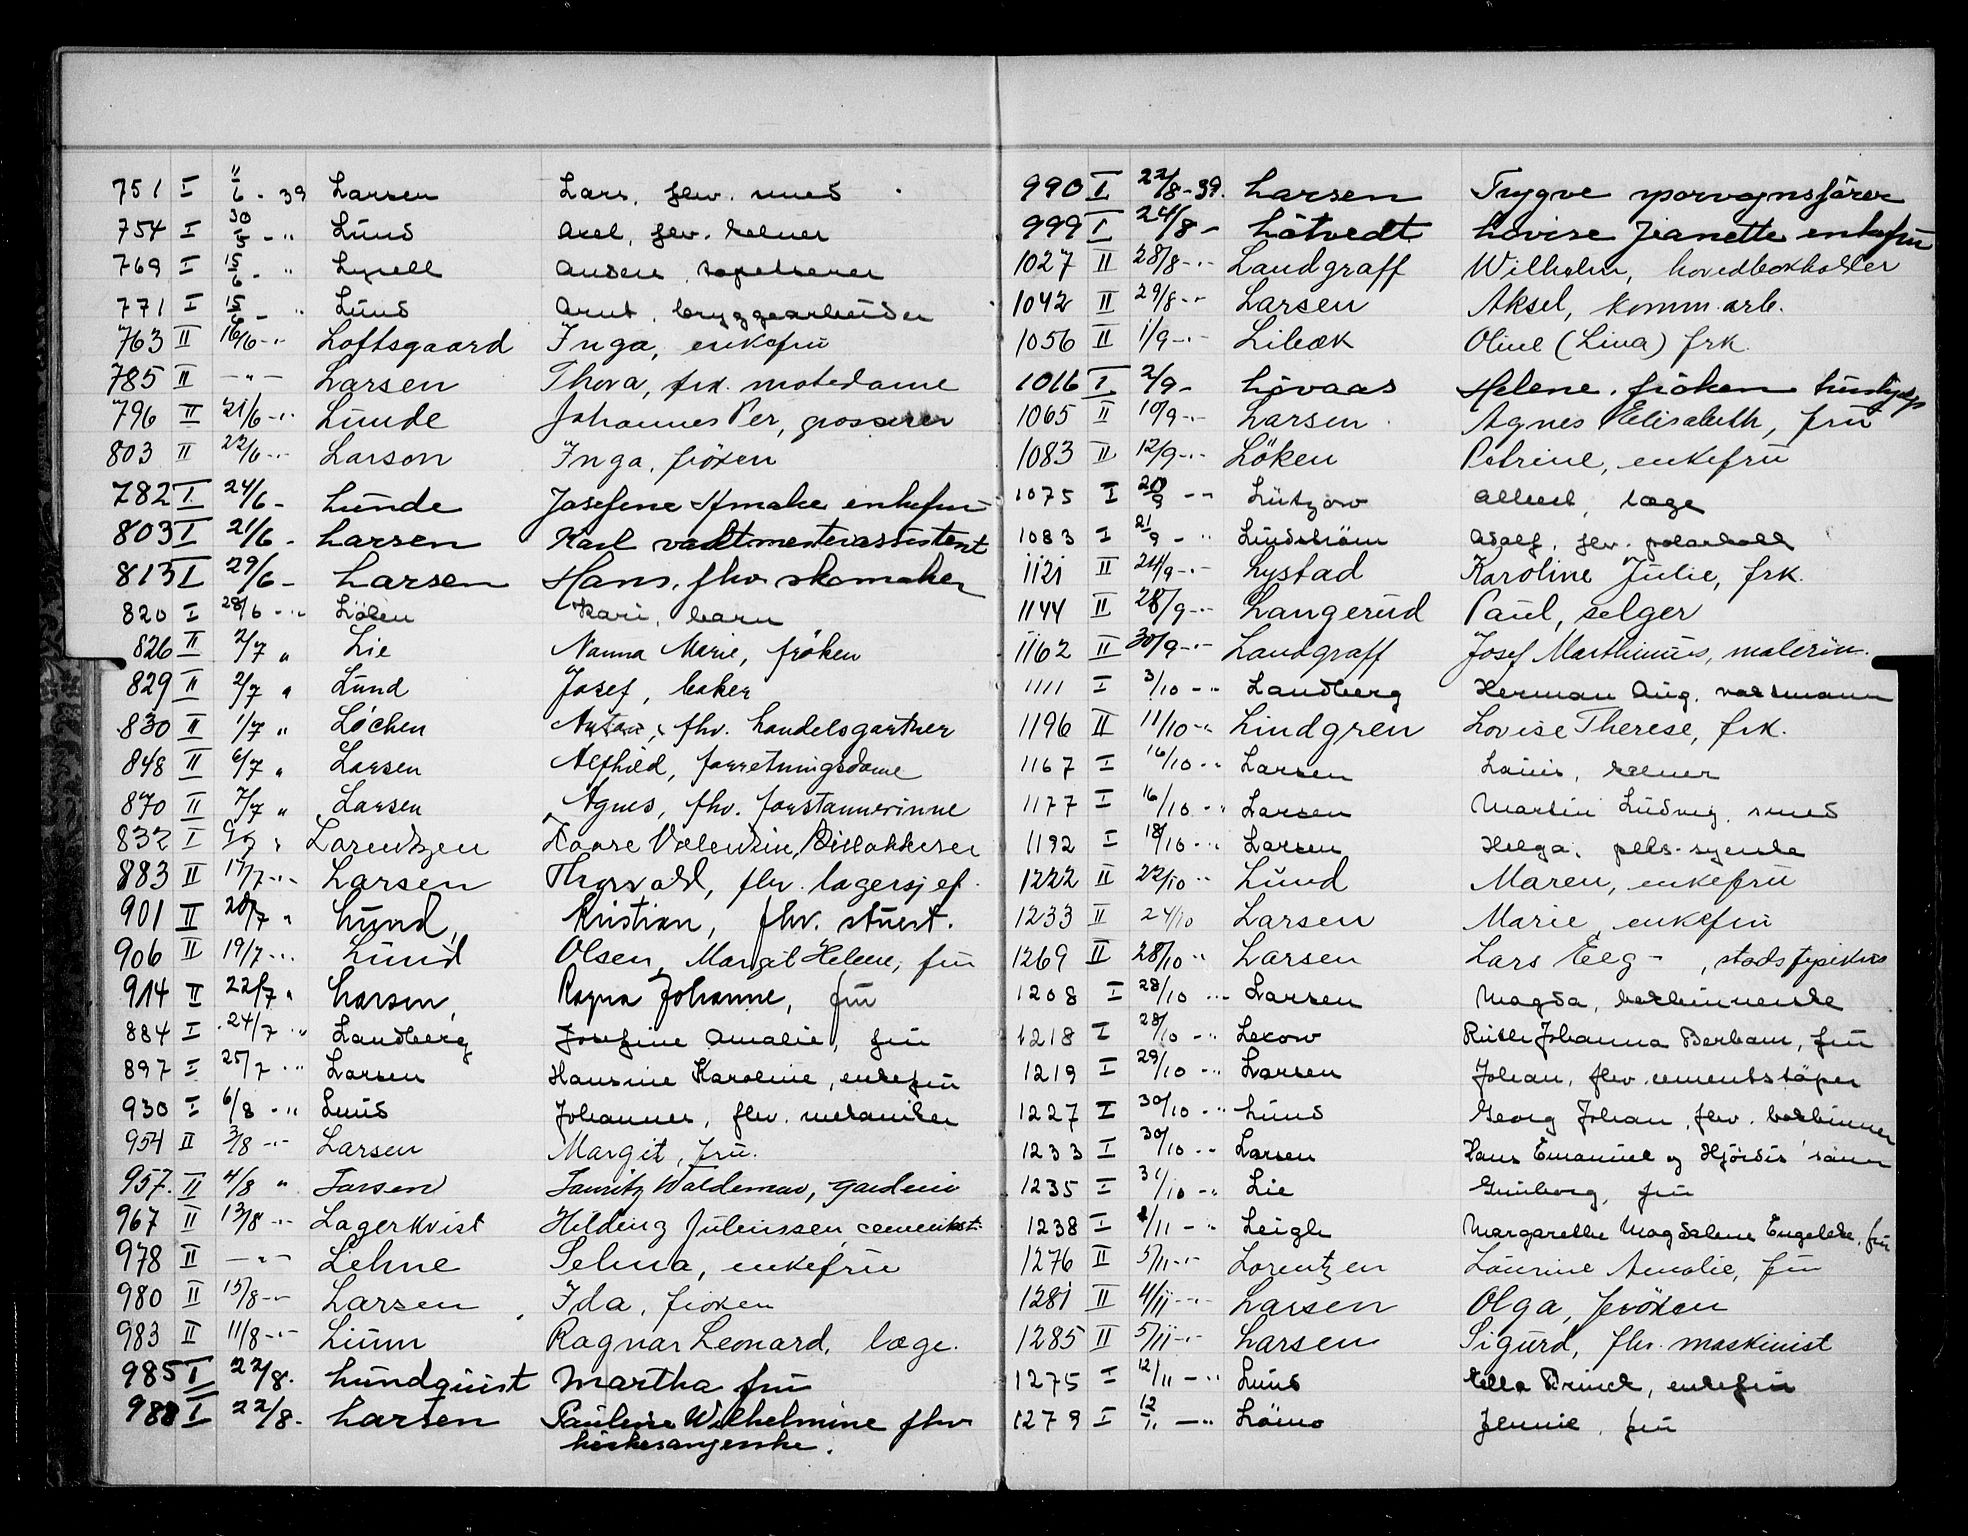 751 I 11/6 - 39 Larsen Lars, fhv. smed
754 I 30/5 - " Lund Axel, fhv. kelner
769 I 15/6 - " Lyxell tapetserer
771 I 15/6 - " Lund Arnt, bryggearbeider
763 II 16/6 - " - Loftsgaard Inga, enkefru
785 II - " - Larsen Thora, frk. motedame
796 II 21/6 - " - Lunde Johannes Per, grosserer
803 II 22/6 - " - Larson Inga, fröken
782 I 24/6 - Lunde Josefine Amalie enkefru
803 I 21/6 - Larsen Karl vaktmesterassistent
813 I 29/6 - Larsen Hans, fhv. skomaker
820 I 28/6 - " Löken Kari, barn
826 II 2/7 " Lie Nanna Marie, fröken
829 II 2/7 " Lund Josef, baker
830 II 1/7 " Løchen Anton, fhv. handelsgartner
848 II 6/7 " Larsen Alfhild, forretningsdame
870 II 7/7 " Larsen Agnes, fhv. forstannerinne
832 I 9/7 " Larentzen Kaare Valentin, Billakkerer
883 II 17/7 - " - Larsen Thorvald, fhv. lagersjef.
901 II 20/7 " Lund, Kristian, fhv. stuert.
906 II 19/7 - " - Lund Olsen, Margit Helene, fru
914 II 22/7 " Larsen, Ragna Johanne, fru
884 I 24/7 " Landberg Josefine Amalie, fru
897 I 25/7 - " Larsen Hansine Karoline, enkefru
930 I 6/8 - " Lund Johannes, fhv. mekaniker
954 II 3/8 - " - Larsen Margit, fru.
957. II 4/8 " Larsen Lauritz Waldemar,
967 II 13/8 - " - Lagerkvist Hilding Juliussen, cementst.
978 II - " - Lehne Selma, enkefru
980 II 15/8 - " - Larsen Ida, fröken
983 II 11/8 - " - Lium Ragnar Leonard, læge.
985 I 22/8. Lundquist Martha fru
988 I 22/8. Larsen Pauline Wilhelmine fhv
kirkesangerske.
990 I 22/8 - 39. Larsen Trygve sporvognsfører
999 I 24/8 - Løtvedt. Lovise Jeanette enkefru
1027 II 28/8 - " - Landgraff Wilhelm, hovedbokholder
1042 II 29/8 - " Larsen Aksel, komm. arb.
1056 II 1/9 - " - Libæk Oline (Lina) frk.
1016 I 2/9 - Lövaas Helene, fröken
1065 II 10/9 - " Larsen Agnes Elisabeth, fru
1083 II 12/9 - " - Löken Petrine, enkefru
1075 I 20/9 - " Lützow Albert, læge
1083 I 21/9 - " Lindström Adolf, fhv.
1121 II 24/9 - " - Lystad Karoline Julie, frk.
1144 II 28/9 - " - Langerud Paul, selger
1162 II 30/9 - " - Landgraff Josef Marthinius,
1111 I 3/10 - " Landberg Herman Aug. vaktmann
1196 II 11/10 - " Lindgren Lovise Therese, frk.
1167 I 16/10 - " Larsen Louis, kelner
1177 I 16/10 - " Larsen Martin Ludvig, smed
1192 I 18/10 - " Larsen Helga, pels-syerske
1222 II 22/10 - " Lund Maren, enkefru
1233 II 24/10 Larsen Marie, enkefru
1269 II 28/10 - " Larsen Lars Eeg - , stadsfysikus
1208 I 28/10 - " Larsen Magda, bokbinnerske
1218 I 28/10 - " Lexow Ruth Johanna Berbam, fru
1219 I 29/10 - " Larsen Johan, fhv. cementstöper
1227 I 30/10 - " Lund Georg Johan, fhv. bokbinner
1233 I 30/10 - " Larsen Hans Emanuel og Hjördis' sönn
1235 I 31/10 - " Lie Gunborg, fru
1238 I 1/11 - " Leigh Margarethe Magdalene Engelche, fru
1276 II 5/11 - " - Lorentzen Laurine Amalie, fru
1281 II 4/11 - " - Larsen Olga, fröken
1285 II 5/11 - " - Larsen Sigurd, fhv. maskinist
1275 I 12/11 - " Lund Ella Brinck, enkefru
1279 I 12/11 - " Lömo Jennie, fru